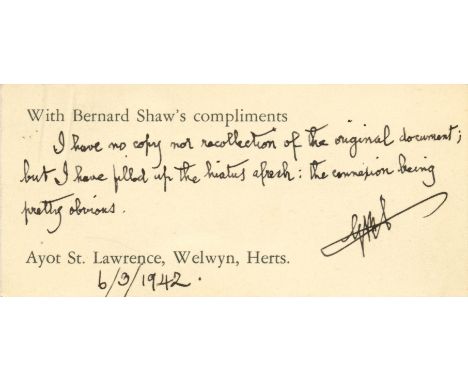 With Bernard Shaw's compliments
I have no copy nor recollection of the original document;
but I have filled up the hiatus afresh: the connexion being
pretty obvious.
GBS
Ayot St. Lawrence, Welwyn, Herts.
6/3/1942.